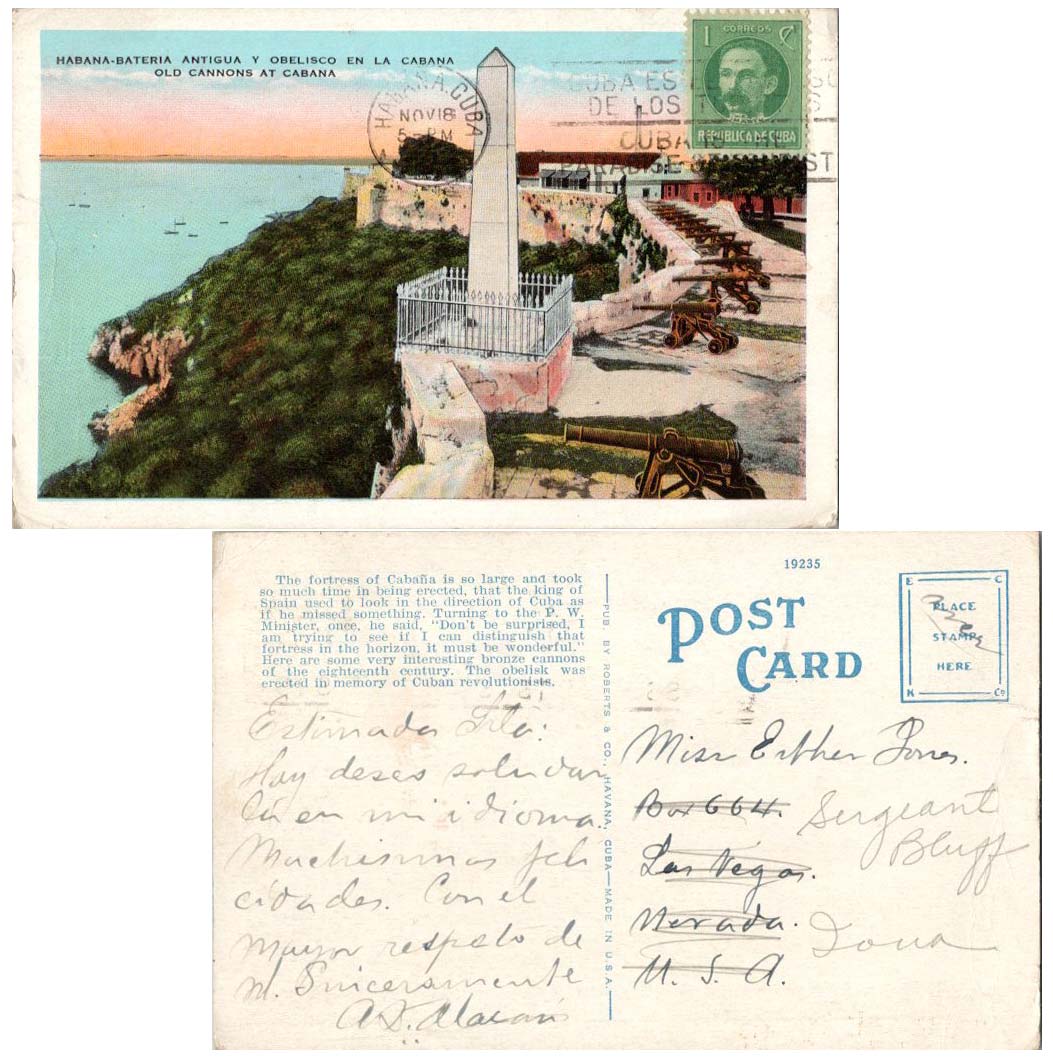 HABANA-BATERIA ANTIGUA Y OBELISCO EN LA CABANA
OLD CANNONS AT CABANA
HABANA, CUBA
NOV 18
5-PM
CUBA ES EL
DE LOS T
CUBA IS
PARADISE
ST
1 CORREOS ₡
REPUBLICA DE CUBA
The fortress of Cabaña is so large and took
so much time in being erected, that the king of
Spain used to look in the direction of Cuba as
if he missed something. Turning to the P. W.
Minister, once, he said, "Don't be surprised, I
am trying to see if I can distinguish that
fortress in the horizon, it must be wonderful."
Here are some very interesting bronze cannons
of the eighteenth century. The obelisk was
erected in memory of Cuban revolutionists.
Estimada Srta:
Hoy deseo saludar
la en mi idioma.
Muchisimas feli
cidades. Con el
mayor respeto de
m. Sinceramente
PUB. BY ROBERTS & CO., HAVANA, CUBA—MADE IN U.S.A.
19235
POST
CARD
E C
PLACE
STAMP
HERE
K Co
Miss Esther Jones.
Box 664.
Las Vegas.
Nevada.
U. S. A.
Sergeant
Bluff
Iowa